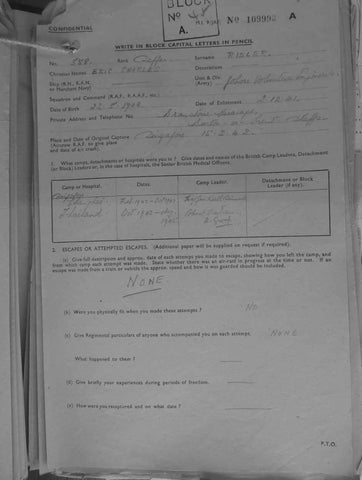 BLOCK
No 48
A.
M.I. 9/JAP/ No 109993 A
CONFIDENTIAL
WRITE IN BLOCK CAPITAL LETTERS IN PENCIL
No. 888. Rank Surname RIDLER.
Christian Names ERIC CHARLES Decorations
Ship (R.N., R.A.N. or Merchant Navy) Unit & Div. (Army) Johore Volunteer Engineers
Squadron and Command (R.A.F., R.A.A.F., etc.)
Date of Birth Date of Enlistment 2.12.41.
Private Address and Telephone No.
Place and Date of Original Capture Singapore 15.2.42.
(Aircrew R.A.F. to give place and date of air crash).
1. What camps, detachments or hospitals were you in? Give dates and names of the British Camp Leaders, Detachment (or Block) Leaders or, in the case of hospitals, the Senior British Medical Officers.
Camp or Hospital. Dates. Camp Leader. Detachment or Block Leader (if any).
Singapore
Thailand Oct 1942-Aug 1945
2. ESCAPES OR ATTEMPTED ESCAPES. (Additional paper will be supplied on request if required).
(a) Give full description and approx. date of each attempt you made to escape, showing how you left the camp, and from which camp each attempt was made. State whether there was an air-raid in progress at the time or not. If an escape was made from a train or vehicle the approx. speed and how it was guarded should be included.
NONE
(b) Were you physically fit when you made these attempts? NO
(c) Give Regimental particulars of anyone who accompanied you on each attempt. NONE
What happened to them?
(d) Give briefly your experiences during periods of freedom.
(e) How were you recaptured and on what date?
P.T.O.